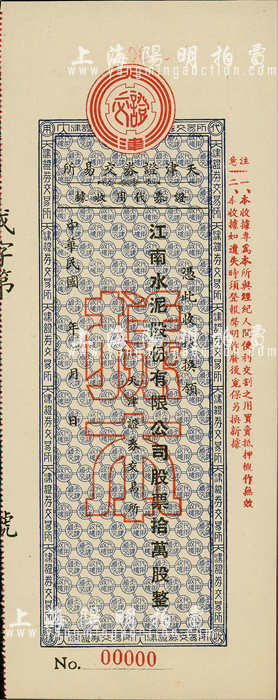 上海陽明拍賣
yangmingauction.com
證交
津
天津證券交易所
證券代用收據
憑此收據換領
江南水泥股份有限公司股票拾萬股整
天津證券交易所
中華民國 年 月 日
樣本
注意
一、本收據專為本所與經紀人間便利交割之用買賣抵押概作無效
二、本收據如遺失時須登報聲明作廢後覓保另換新據
字第
號
天津證券交易所
No. 00000